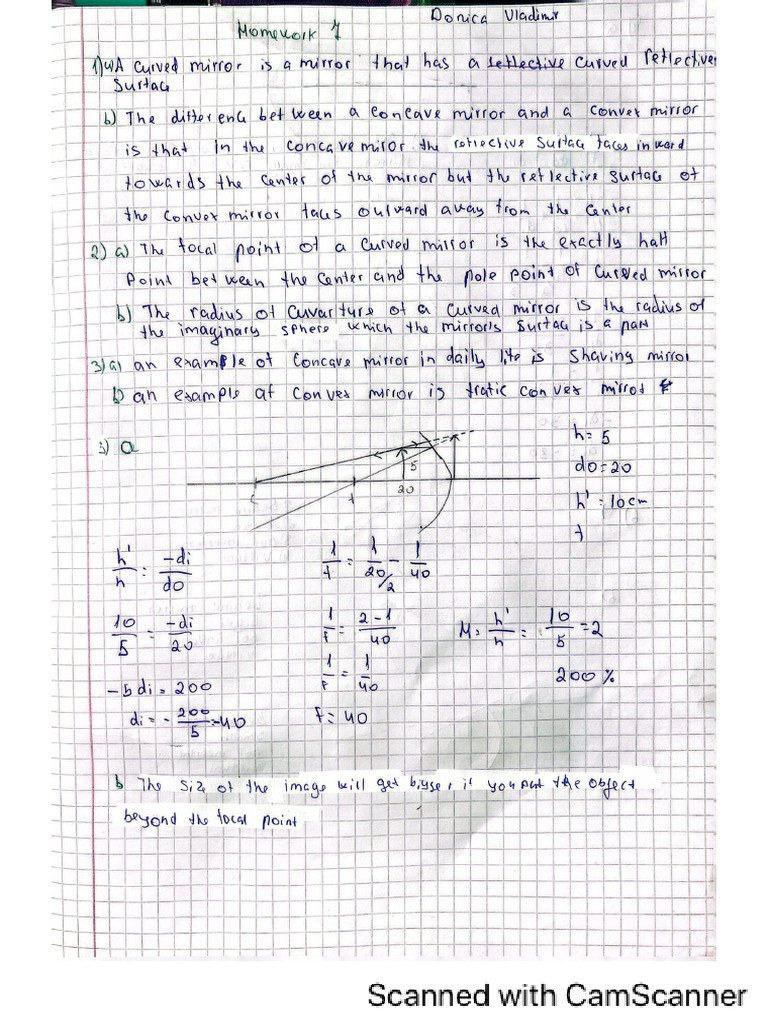 Donica Vladimir
Homework 7
1) a) A curved mirror is a mirror that has a reflective curved reflective
surface
b) The difference between a concave mirror and a convex mirror
is that in the concave miror the reflective surface faces inward
towards the center of the mirror but the reflective surface of
the convex mirror faces outward away from the center
2) a) The focal point of a curved mirror is the exactly half
point between the center and the pole point of curved mirror
b) The radius of curvarture of a curved mirror is the radius of
the imaginary sphere which the mirrors surface is a part
3) a) an example of concave mirror in daily life is shaving mirror
b) an example of convex mirror is trafic convex mirror
5) a
h = 5
5
do = 20
C f 20
h' = 10cm
f
h'/h = -di/do
1/f = 1/20/2 - 1/40
10/5 = -di/20
1/f = 2-1/40
M = h'/h = 10/5 = 2
-5di = 200
1/f = 1/40
200 %
di = -200/5 = -40
f = 40
b The size of the image will get bigger, if you put the object
beyond the focal point
Scanned with CamScanner